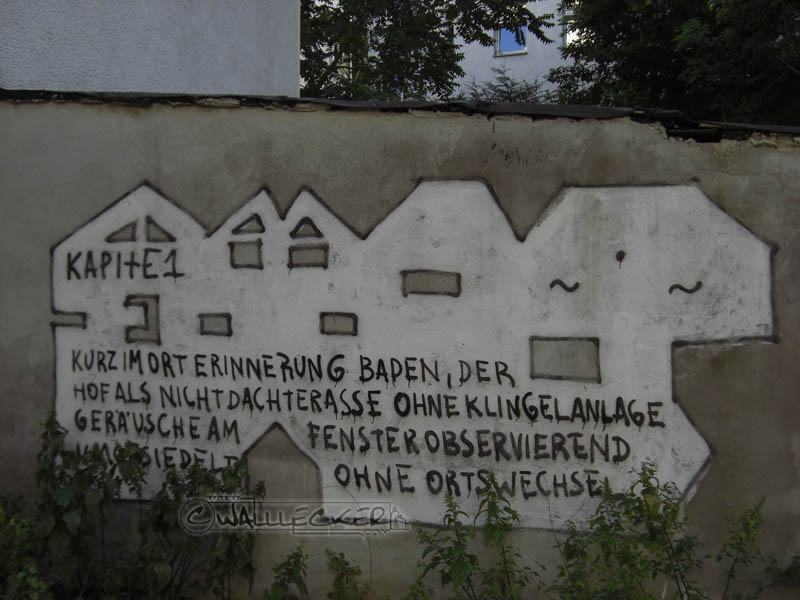 KAPITE1
KURZ IM ORT ERINNERUNG BADEN, DER
HOF ALS NICHTDACHTERASSE OHNE KLINGELANLAGE
GERÄUSCHE AM FENSTER OBSERVIEREND
OHNE ORTSWECHSEL
©WALLECKER
.com